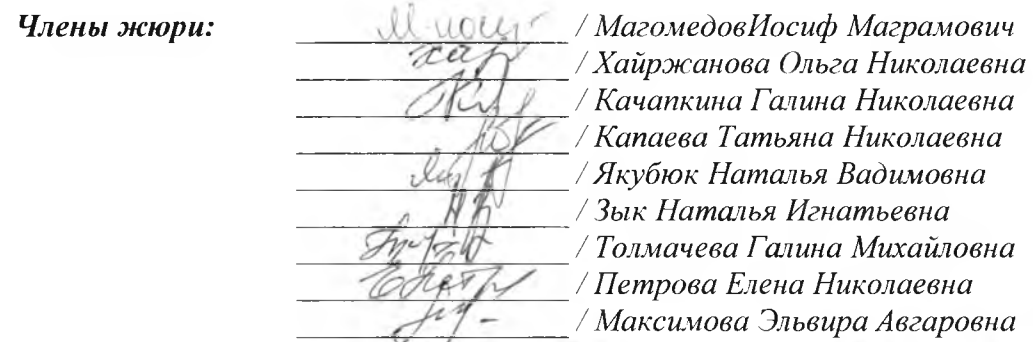 Члены жюри: / МагомедовИосиф Маграмович
/ Хайржанова Ольга Николаевна
/ Качапкина Галина Николаевна
/ Капаева Татьяна Николаевна
/ Якубюк Наталья Вадимовна
/ Зык Наталья Игнатьевна
/ Толмачева Галина Михайловна
/ Петрова Елена Николаевна
/ Максимова Эльвира Авгаровна